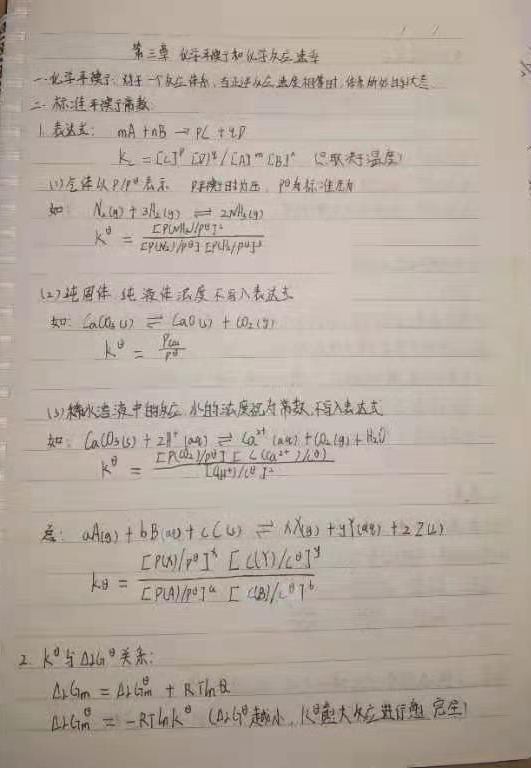 第三章 化学平衡和化学反应速率
一.化学平衡: 对于一个反应体系, 当正逆反应速度相等时, 体系所处的状态
二. 标准平衡常数
1. 表达式: mA + nB → pC + qD
Kc = [C]^p [D]^q / [A]^m [B]^n (只取决于温度)
(1) 气体以P/P^θ表示 P平衡时分压, P^θ为标准压力
如 N₂(g) + 3H₂(g) ⇌ 2NH₃(g)
K^θ = [P(NH₃)/P^θ]² / [P(N₂)/P^θ] [P(H₂)/P^θ]³
(2) 纯固体 纯液体浓度不写入表达式
如: CaCO₃(s) ⇌ CaO(s) + CO₂(g)
K^θ = Pco₂ / P^θ
(3) 稀水溶液中的反应, 水的浓度视为常数, 不写入表达式
如: CaCO₃(s) + 2H⁺(aq) ⇌ Ca²⁺(aq) + CO₂(g) + H₂O
K^θ = [P(CO₂)/P^θ] [C(Ca²⁺)/C^θ] / [C(H⁺)/C^θ]²
总: aA(g) + bB(aq) + cC(s) ⇌ xX(g) + yY(aq) + zZ(l)
K^θ = [P(X)/P^θ]^x [C(Y)/C^θ]^y / [P(A)/P^θ]^a [C(B)/C^θ]^b
2. K^θ与ΔrG^θ关系:
ΔrGm = ΔrGm^θ + RTlnQ
ΔrGm^θ = -RTlnK^θ (ΔrG^θ越小, K^θ愈大反应进行愈完全)